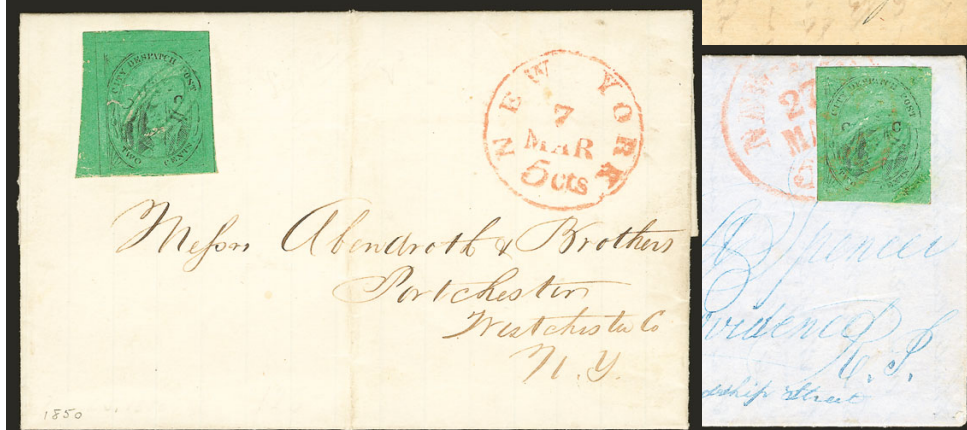 CITY DESPATCH POST
2
TWO CENTS
NEW YORK
7
MAR
5cts
Messrs Abendroth & Brothers
Portchester
Westchester Co
N.Y.
1850
NEW
27
MA
5
CITY DESPATCH POST
C C
TWO CENTS
A Spencer
vidence
R. I.
dship Street